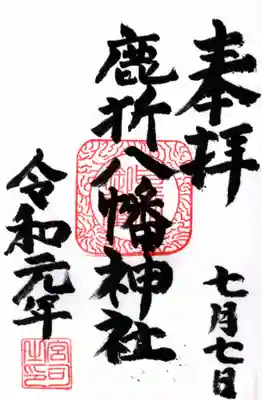 奉拝
七月七日
鹿折八幡神社
令和元年
宮司之印